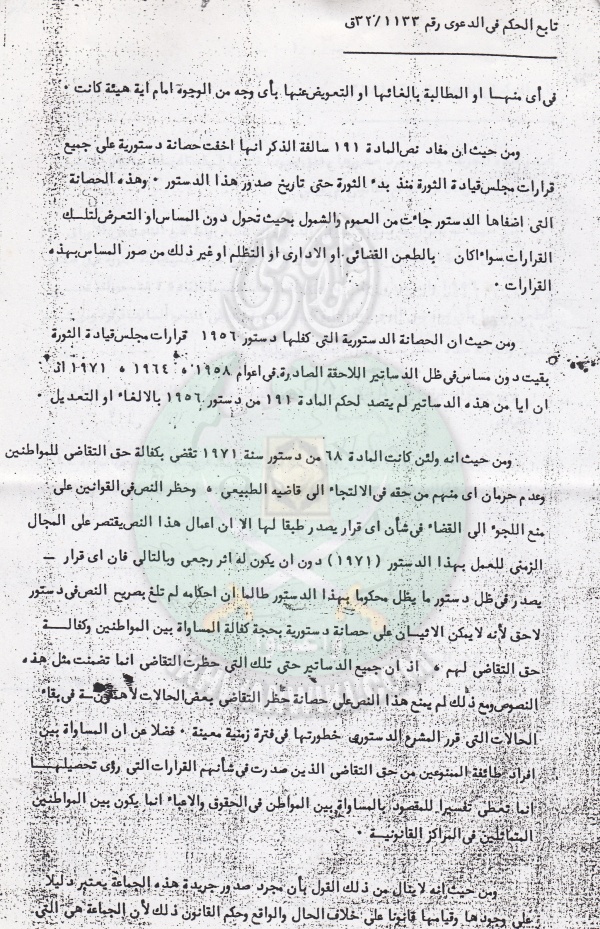 تابع الحكم فى الدعوى رقم ١١٣٣/٣٢ق
فى أى منهـــا او المطالبة بالغائها او التعويض عنها بأى وجه من الوجوة امام اية هيئة كانت ٠
ومن حيث ان مفاد نص المادة ١٩١ سالفة الذكر انها اخفت حصانة دستورية على جميع
قرارات مجلس قيادة الثورة منذ بدء الثورة حتى تاريخ صدور هذا الدستور ٠ وهذه الحصانة
التى اضفاها الدستور جاءت من العموم والشمول بحيث تحول دون المساس او التعرض لتلــك
القرارات سواء اكان بالطعن القضائى او الادارى او التظلم او غير ذلك من صور المساس بهـذه
القرارات ٠
ومن حيث ان الحصانة الدستورية التى كفلها دستور ١٩٥٦ قرارات مجلس قيادة الثورة
بقيت دون مساس فى ظل الدساتير اللاحقة الصادرة فى اعوام ١٩٥٨ ، ١٩٦٤ ، ١٩٧١ اذ
ان ايا من هذه الدساتير لم يتصد لحكم المادة ١٩١ من دستور ١٩٥٦ بالالغاء او التعديل ٠
ومن حيث انه ولئن كانت المادة ٦٨ من دستور سنة ١٩٧١ تقضى بكفالة حق التقاضى للمواطنين
وعدم حرمان اى منهم من حقه فى الالتجاء الى قاضيه الطبيعى ، وحظر النص فى القوانين على
منع اللجوء الى القضاء فى شأن اى قرار يصدر طبقا لها الا ان اعمال هذا النص يقتصر على المجال
الزمنى للعمل بهذا الدستور (١٩٧١) دون ان يكون له اثر رجعى وبالتالى فان اى قرار ــ
يصدر فى ظل دستور ما يظل محكوما بهذا الدستور طالما ان احكامه لم تلغ بصريح النص فى دستور
لاحق لأنه لا يمكن الاتيان على حصانة دستورية بحجة كفالة المساواة بين المواطنين وكفالــــة
حق التقاضى لهم ، اذ ان جميع الدساتير حتى تلك التى حظرت التقاضى انما تضمنت مثل هذه
النصوص ومع ذلك لم يمنع هذا النص على حصانة حظر التقاضى بعض الحالات فى بقاء
الحالات التى قرر المشرع الدستورى خطورتها فى فترة زمنية معينة ٠ فضلا عن ان المساواة بين
افراد طائفة الممنوعين من حق التقاضى الذين صدرت فى شأنهم القرارات التى رؤى تحصيلهـــا
انما تعطى تفسيرا للمقصود بالمساواة بين المواطن فى الحقوق والاعباء انما يكون بين المواطنين
المتماثلين فى المراكز القانونيـة ٠
ومن حيث انه لا ينال من ذلك القول بأن مجرد صدور جريدة هذه الجماعة يعتبر دليلا
على وجودها وقيامها قانونا على خلاف الحال والواقع وحكم القانون ذلك لأن الجماعة هى التى